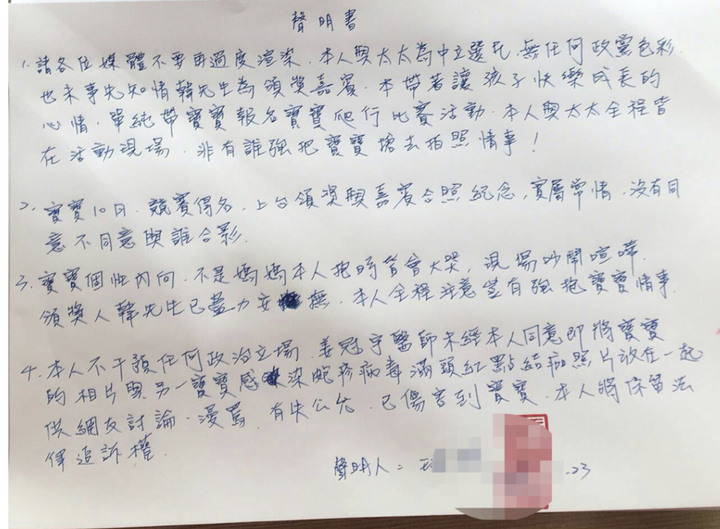 聲明書
1. 請各位媒體不要再過度渲染. 本人與太太為中立選民. 無任何政黨色彩.
也未事先知情韓先生為頒獎嘉賓. 本帶著讓孩子快樂成長的
心情. 單純帶寶寶報名寶寶爬行比賽活動. 本人與太太全程皆
在活動現場. 非有誰強把寶寶搶去拍照情事!
2. 寶寶10日. 競賽得名. 上台領獎與嘉賓合照紀念, 實屬常情. 沒有同
意不同意與誰合影.
3. 寶寶個性內向. 不是媽媽本人抱時皆會大哭, 現場吵鬧喧嘩.
頒獎人韓先生已盡力安撫. 本人全程注意豈有強抱寶寶情事.
4. 本人不干預任何政治立場. 姜冠宇醫師未經本人同意即將寶寶
的相片與另一寶寶感染皰疹病毒滿頭紅點結痂照片放在一起
供網友討論. 漫罵. 有失公允. 已傷害到寶寶. 本人將保留法
律追訴權.
聲明人:
.23